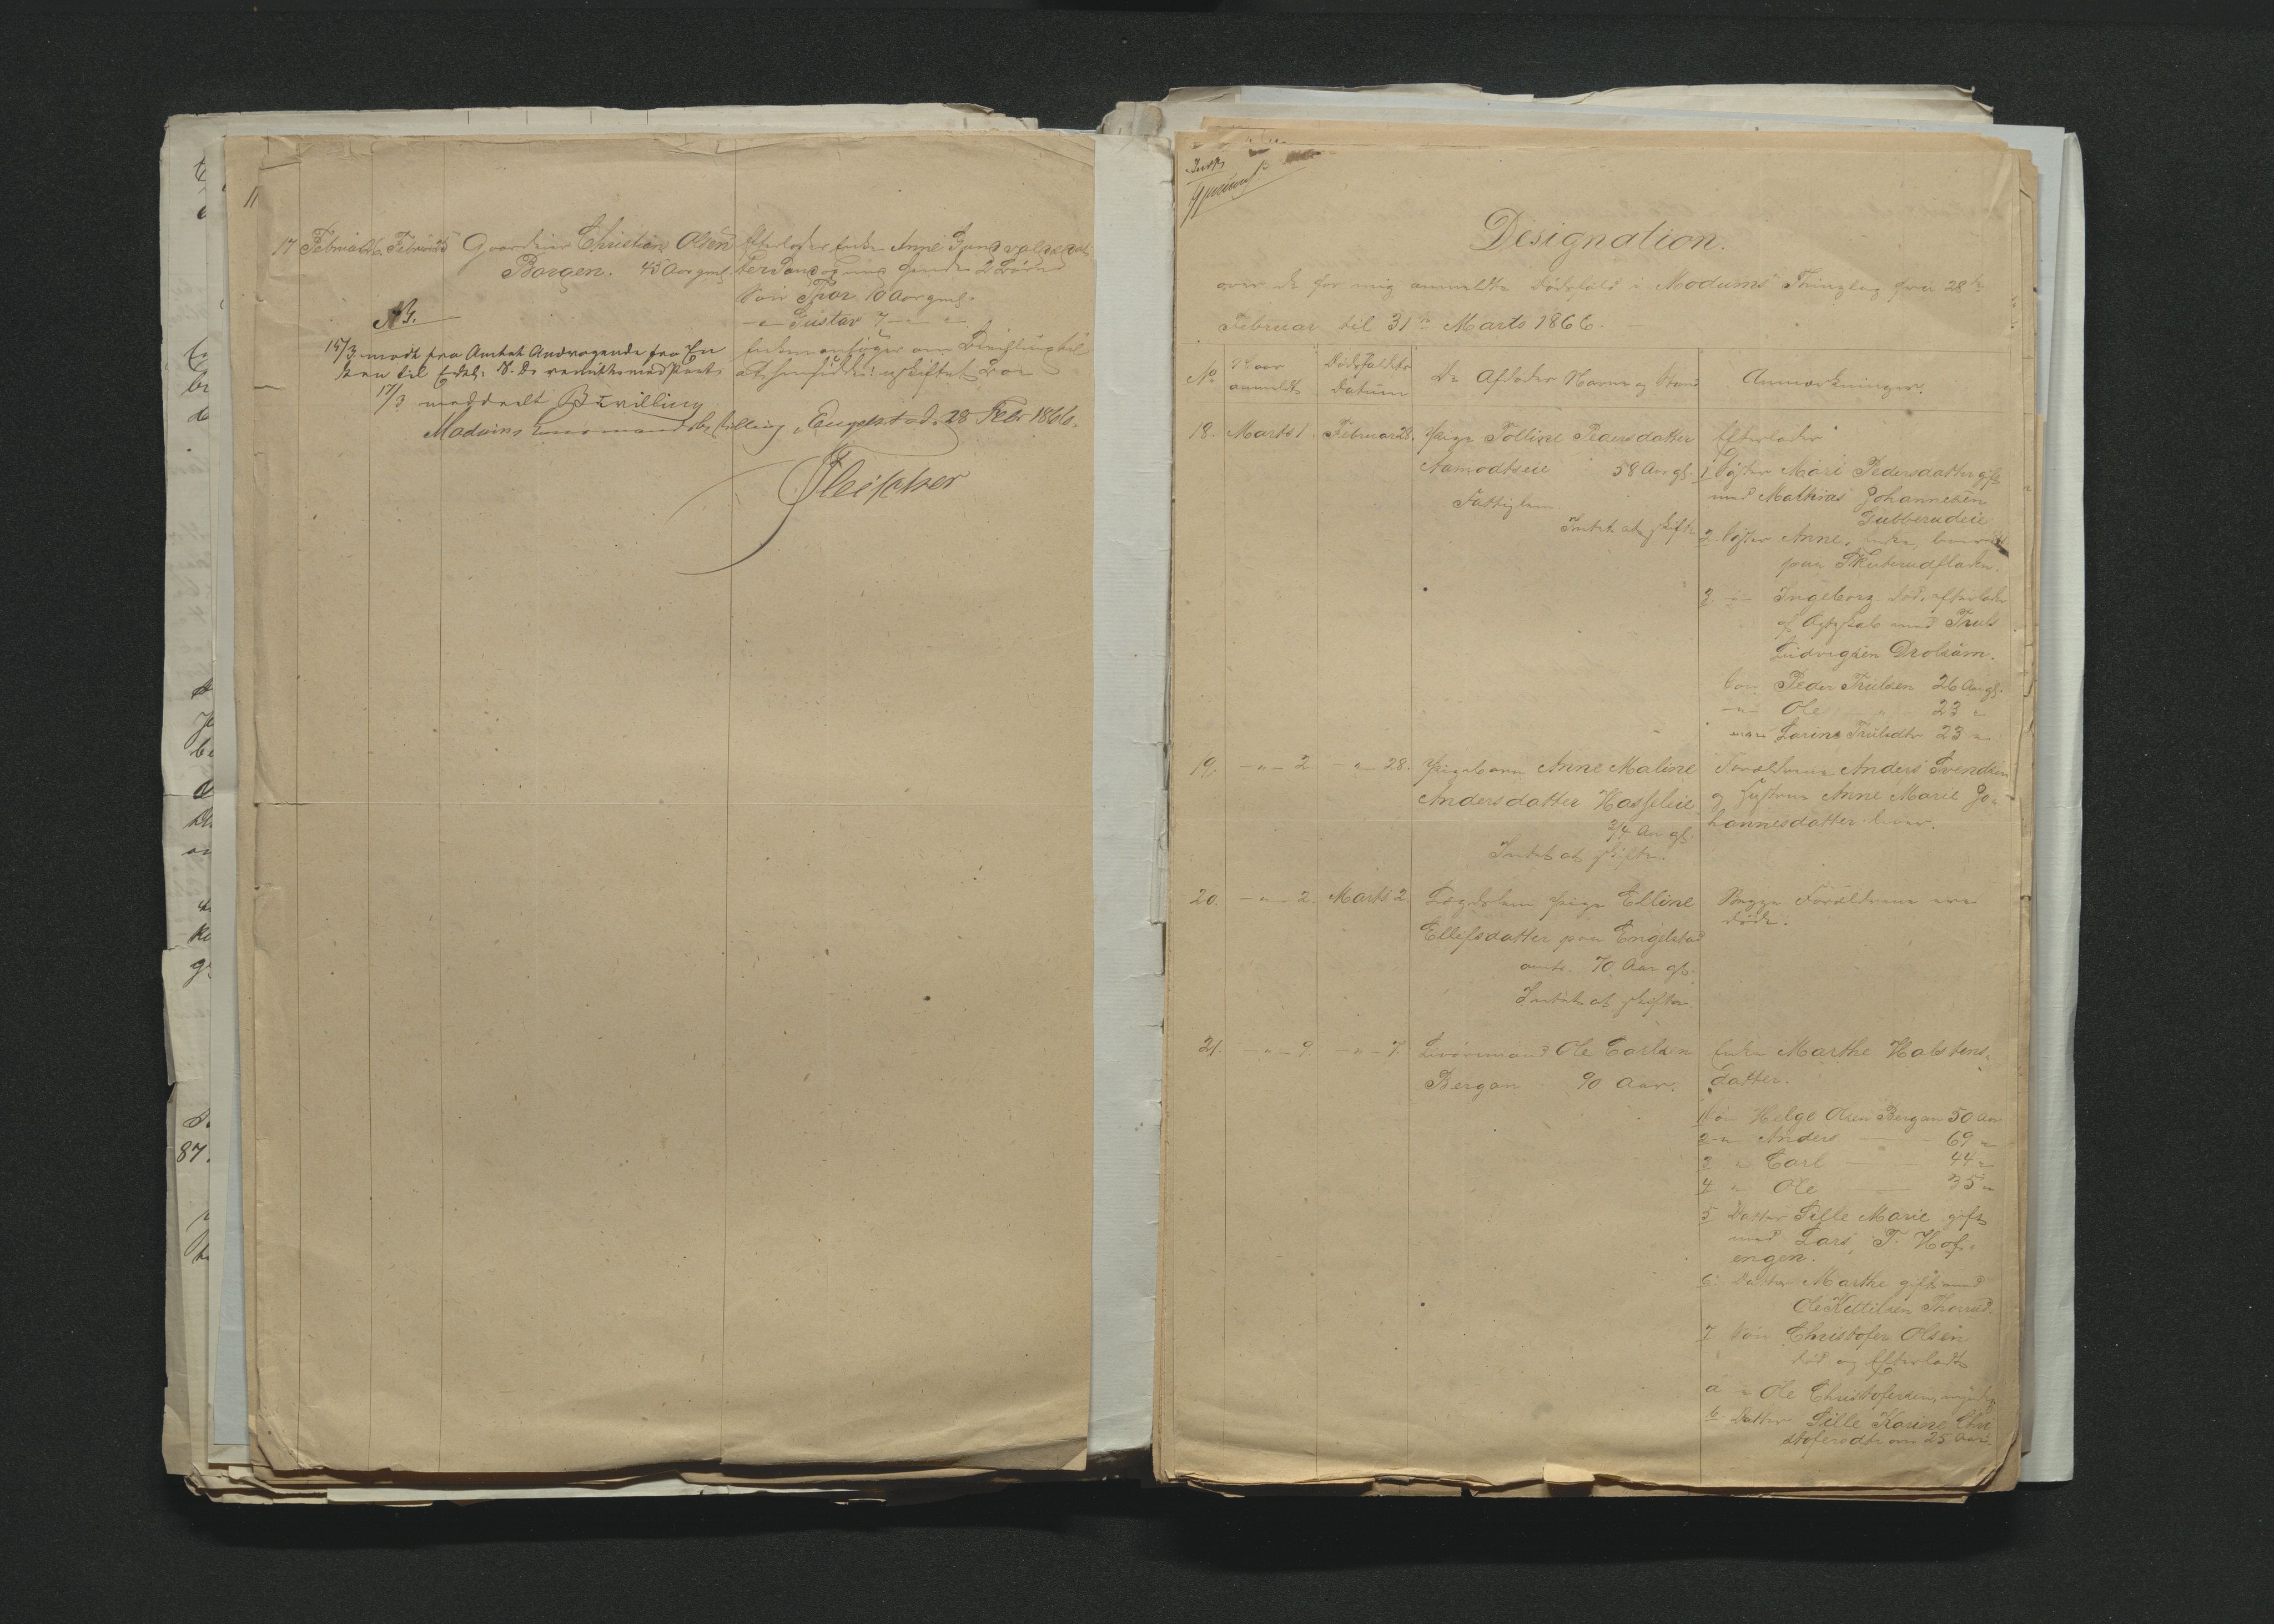 17 Februar 26. Februar 25 Gaardeier Christian Olsen
Borgen. 45 Aar gml.
Efterlader Enke Anne Gunvaldsdat-
ter Sand og med hende 2 Børn
Søn Thor 10 Aar gml.
-"- Gustav 7 -"- "
Enken ansøger om Bevilling til
at hensidde i uskiftet Boe
NB.
15/3 modt fra Amtet Andragende fra En
ken til
17/3 meddeelt Bevilling
Modums Lensmandsbestilling, Engelstad 28 Febr 1866.
Fleischer
Designation
over de for mig anmeldte Dødsfald i Modums Thinglag fra 28de
Februar til 31te Marts 1866. —
No
Naar
anmeldt
Dødsfaldets
Datum
De Afdødes Navne og Stand
Anmærkninger.
18. Marts 1. Februar 28. Pige Polline Pedersdatter
Aamodtseie 58 Aar gl.
Fattiglem.
Intet at skifte
Efterlader
1 Syster Mari Pedersdatter gift
med Mathias Johannesen
Gubberudeie
2 Syster Anne, Enke, boende
paa Skuterudfladen.
3 -"- Ingeborg død, efterlader
af Ægteskab med Truls
Ludvigsen Drolsum.
Søn Peder Trulsen 26 Aar gl.
-"- Ole " 23 "
Larine Trulsdtr 23 "
19. -"- 2 -"- 28. Pigebarn Anne Maline
Andersdatter Hasseleie
3/4 Aar gl.
Intet at skifte.
Forældrene Anders Svendsen
og Hustrue Anne Marie Jo-
hannesdatter lever.
20. -"- 2. Marts 2. Lægdslem Pige Elline
Ellefsdatter paa Engelstad
omtr. 70 Aar gl.
Intet at skifte.
Begge Forældrene ere
døde.
21. -"- 9. -"- 7. Livøresmand Ole Carlsen
Bergan 90 Aar.
Enke Marthe Halstens-
datter.
1 Søn Helge Olsen Bergan 50 Aar
2 -"- Anders — 69 "
3 " Carl — 44 "
4 " Ole — 35 "
5 Datter Sille Marie gift
med Lars T. Hof-
engen.
6 Datter Marthe gift med
Ole Kettilsen Thorrud.
7 Søn Christofer Olsen
død og Efterladt
a " Ole Christofersen, myndig
b Datter Sille Karine Chri
stofersdtr om 25 Aar.